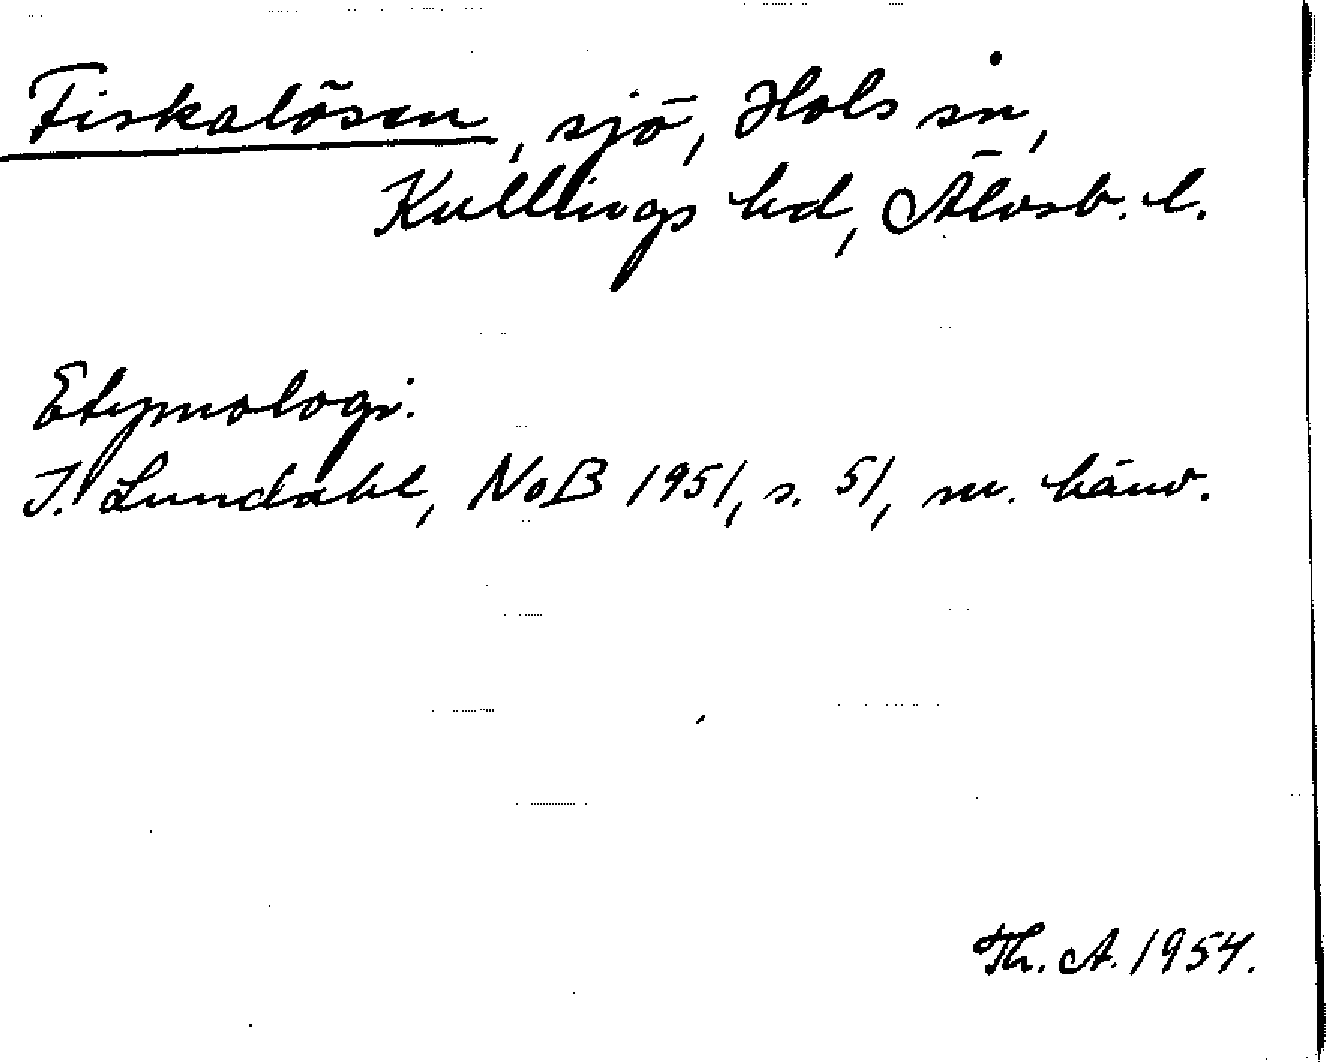 Fiskalösen, sjö, Hols sn,
Kullings hd, Älvsb. l.
Etymologi.
I. Lundahl, NoB 1951, s. 51, m. hänv.
Th. A. 1954.